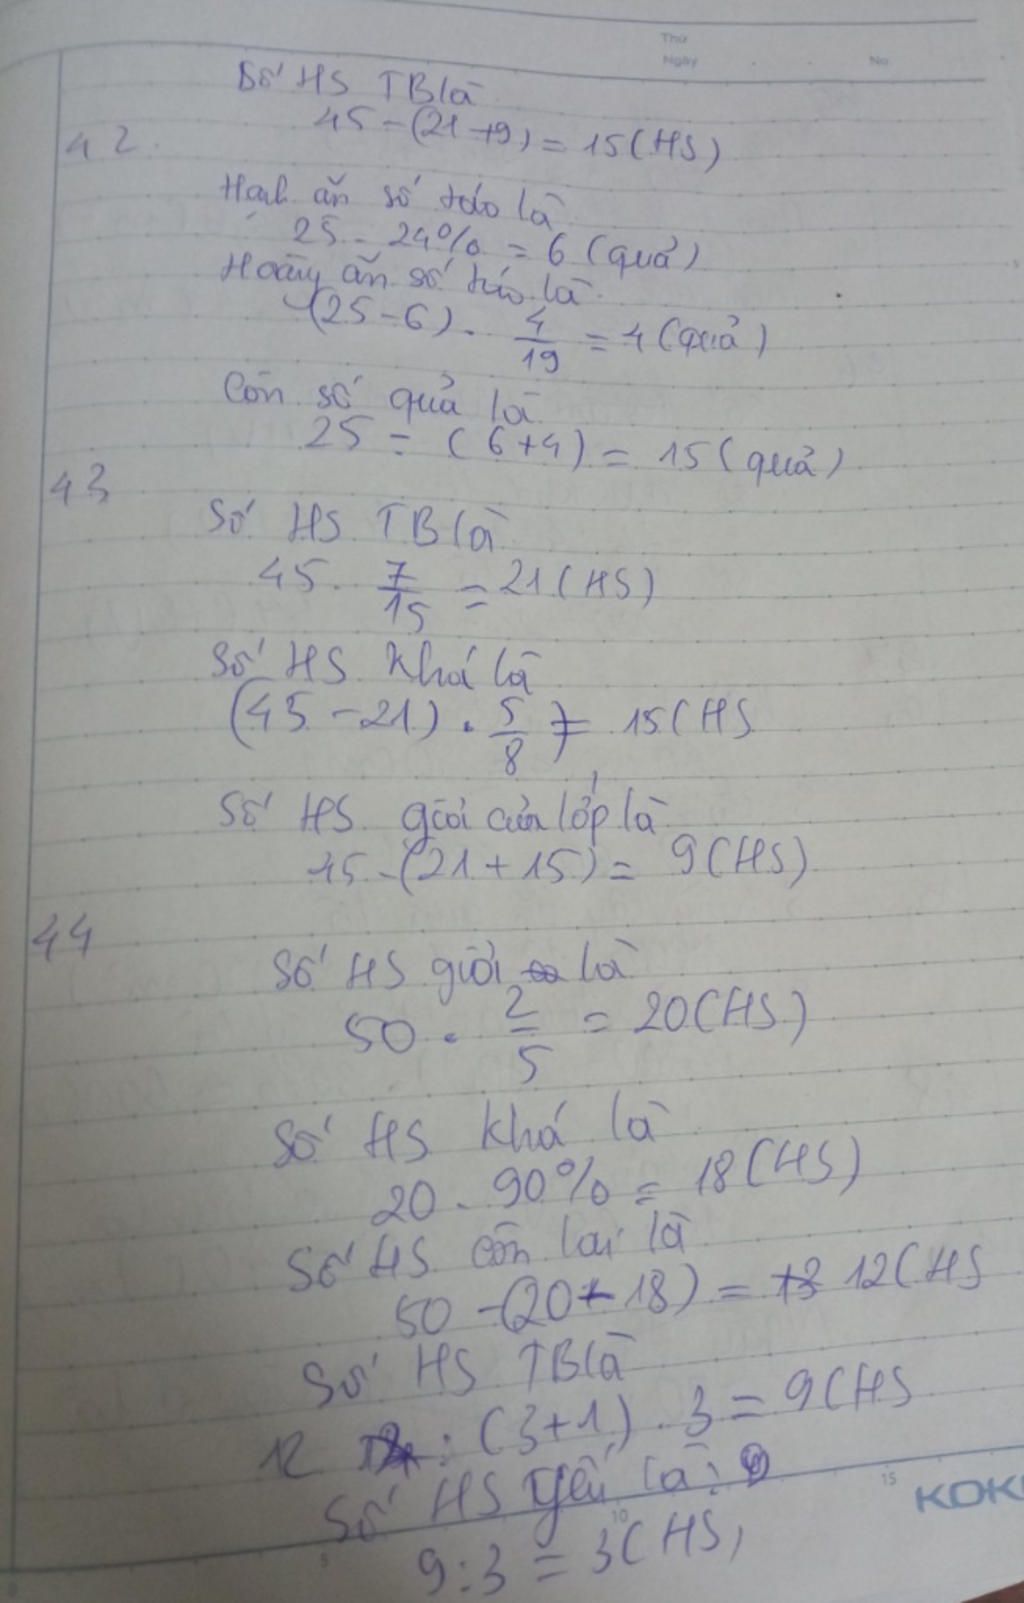 Thứ
Ngày No.
Số HS TB là
45 - (21+9) = 15 (HS)
42.
Hạnh ăn số táo là
25 . 24% = 6 (quả)
Hoàng ăn số táo là
(25-6) . 4/19 = 4 (quả)
Còn số quả là
25 - (6+4) = 15 (quả)
43
Số HS TB là
45 . 7/15 = 21 (HS)
Số HS Khá là
(45-21) . 5/8 = 15 (HS
Số HS giỏi của lớp là
45 - (21+15) = 9 (HS)
44
Số HS giỏi là
50 . 2/5 = 20 (HS)
Số HS khá là
20 . 90% = 18 (HS)
Số HS còn lại là
50 - (20+18) = 12 (HS
Số HS TB là
12 : (3+1) . 3 = 9 (HS
Số HS yếu là:
9:3 = 3 (HS)
5 10 15
KOK